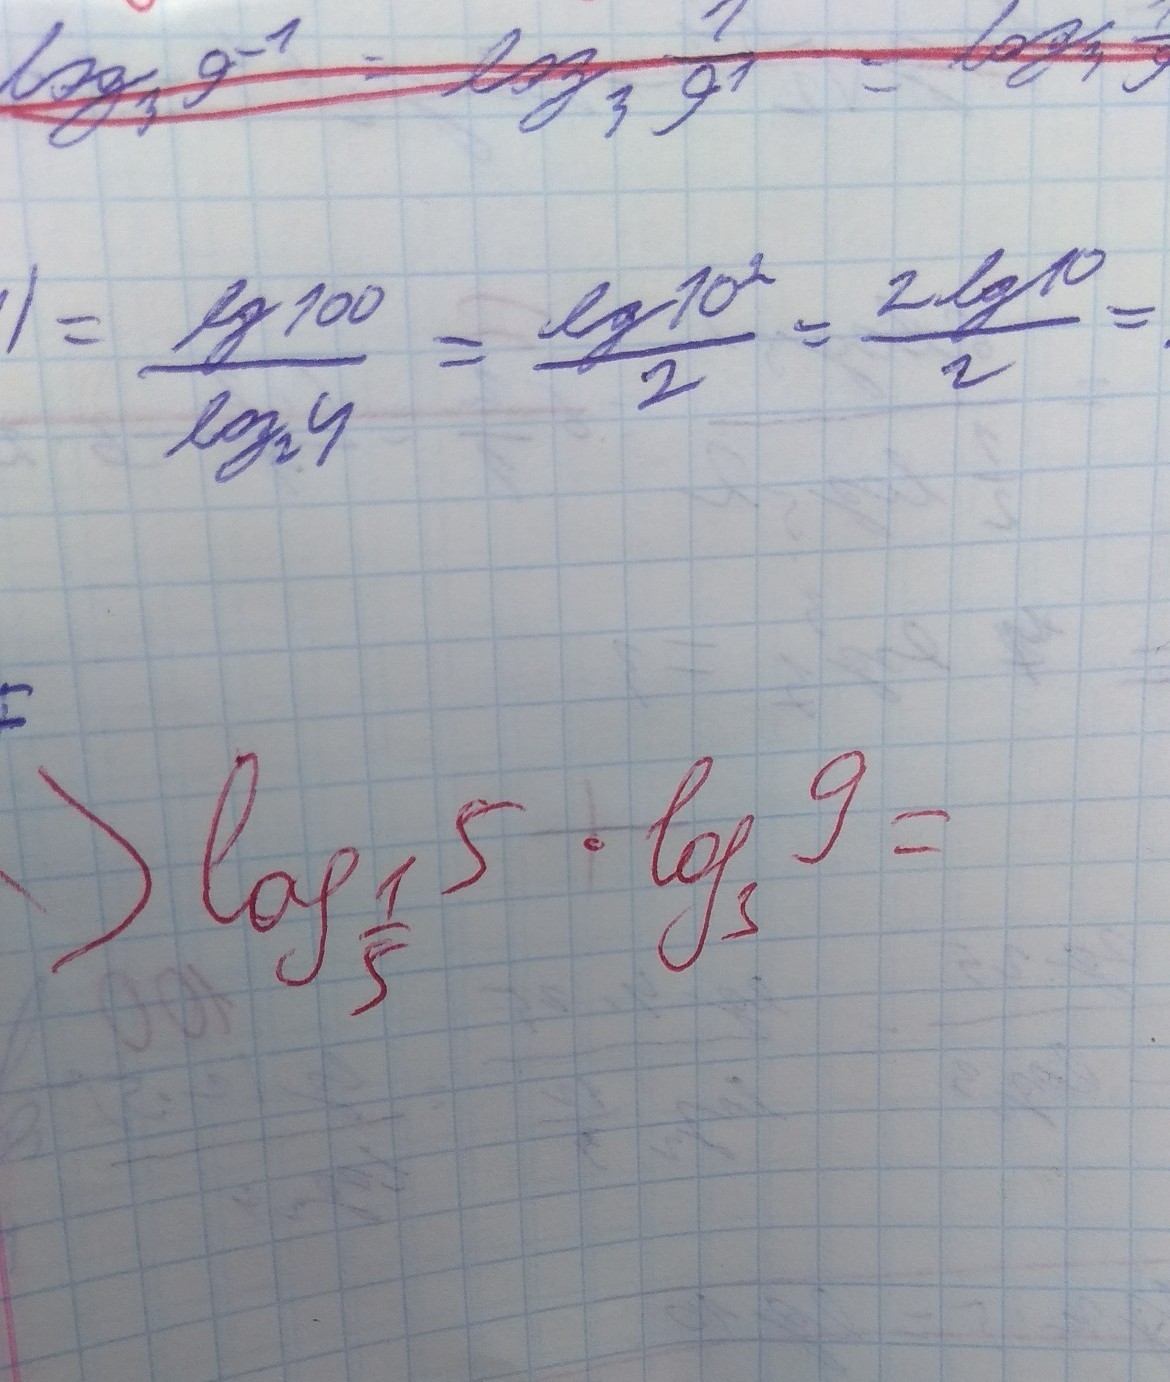 log₃ 9⁻¹ = log₃ 1/9¹ = log₃ 1/9
= lg 100 / log₂ 4 = lg 10² / 2 = 2 lg 10 / 2 =
> log_{1/5} 5 · log₃ 9 =